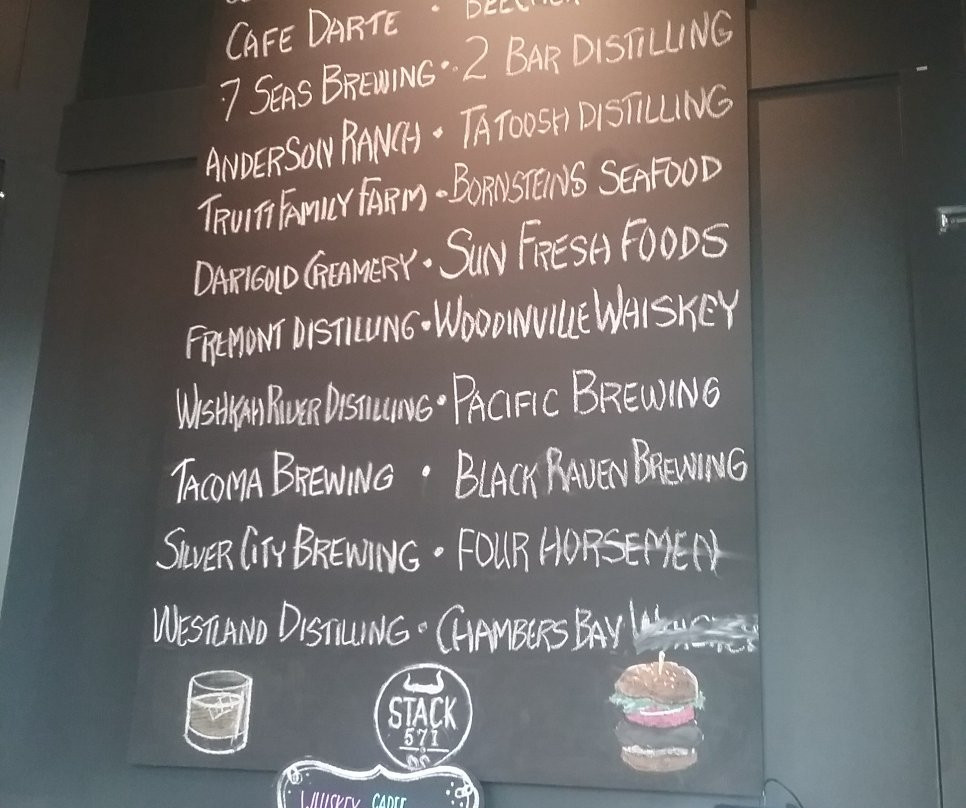 CAFE DARTE •
7 SEAS BREWING • 2 BAR DISTILLING
ANDERSON RANCH • TATOOSH DISTILLING
TRUITT FAMILY FARM • BORNSTEINS SEAFOOD
DARIGOLD CREAMERY • SUN FRESH FOODS
FREMONT DISTILLING • WOODINVILLE WHISKEY
WISHKAH RIVER DISTILLING • PACIFIC BREWING
TACOMA BREWING • BLACK RAVEN BREWING
SILVER CITY BREWING • FOUR HORSEMEN
WESTLAND DISTILLING • CHAMBERS BAY
STACK
571
WHISKEY